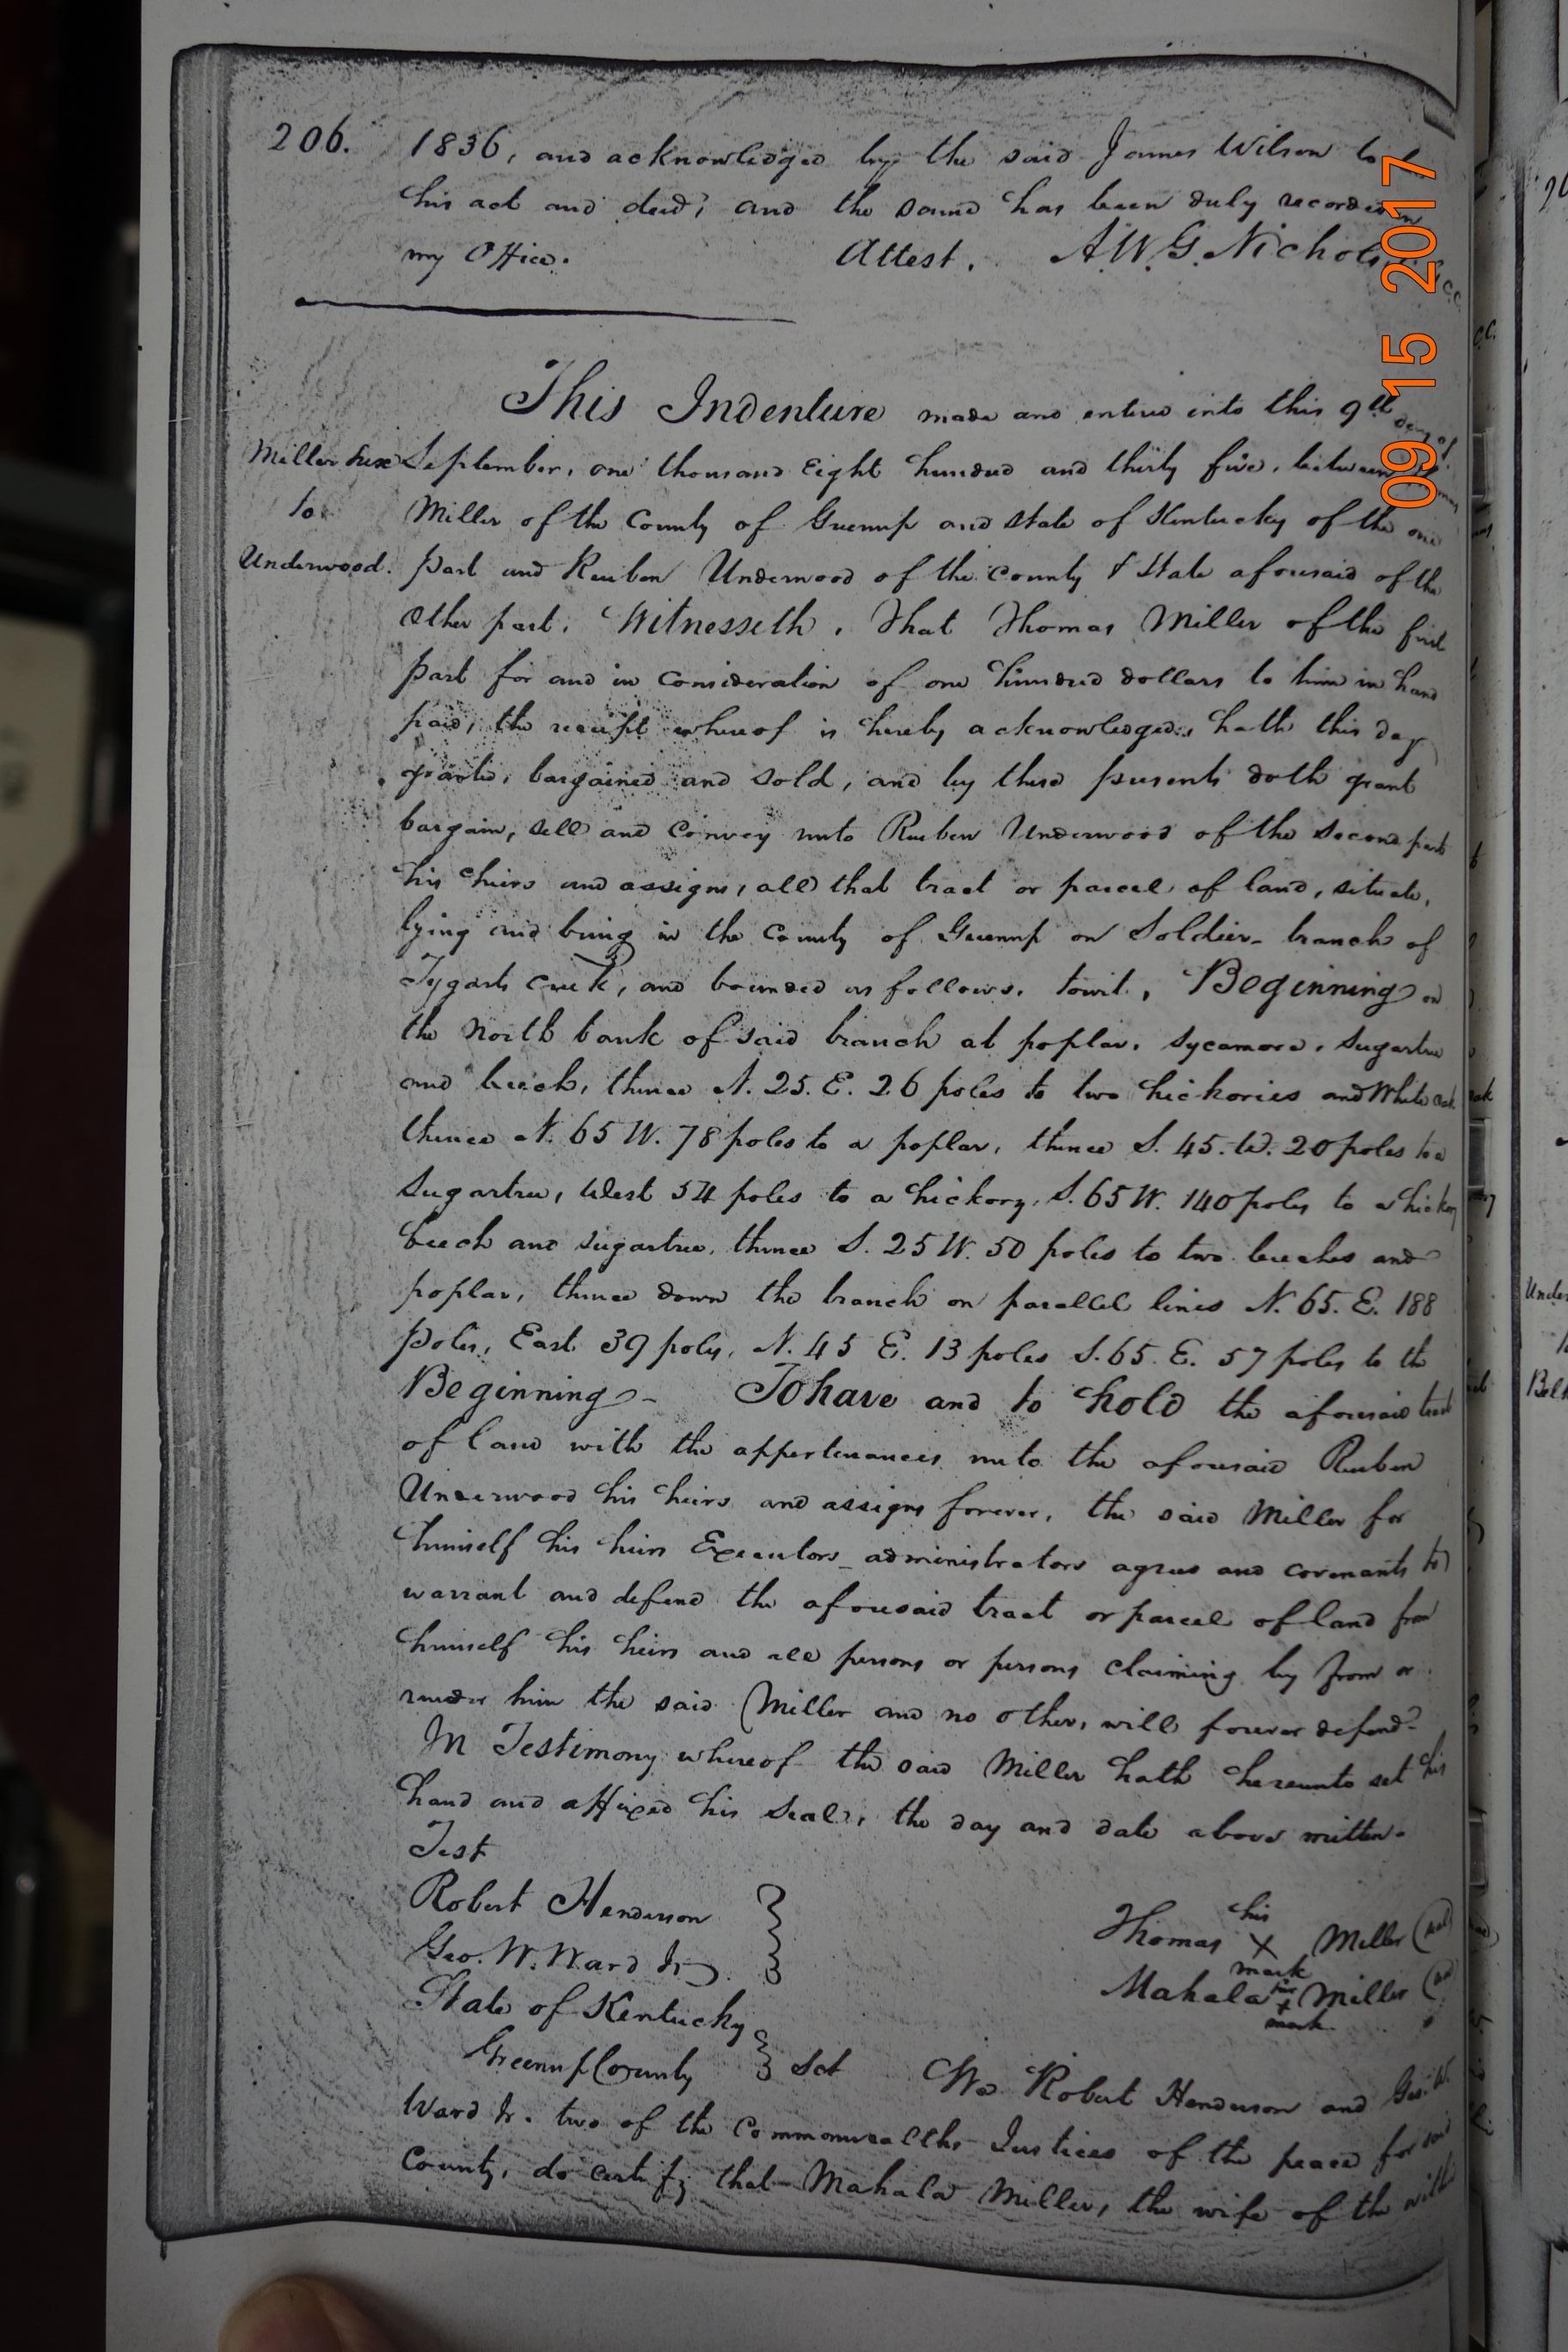 206. 1836, and acknowledged by the said James Wilson to
his act and deed, and the same has been duly recorded in
my Office. Attest. A.W.G. Nichols
This Indenture made and entered into this 9th day of
Miller &uxr September, one thousand Eight hundred and thirty five, between Thomas
to Miller of the County of Greenup and state of Kentucky of the one
Underwood. part and Reuben Underwood of the County & State aforesaid of the
Other part. Witnesseth, That Thomas Miller of the first
part for and in Consideration of one hundred dollars to him in hand
paid, the receipt whereof is hereby acknowledged, hath this day
granted, bargained and sold, and by these presents doth grant
bargain, sell and Convey unto Reuben Underwood of the second part
his heirs and assigns, all that tract or parcel of land, situate,
lying and being in the County of Greenup on Soldier branch of
Tygarts creek, and bounded as follows. towit, Beginning on
the North bank of said branch at poplar, sycamore, sugartree
and beech, thence N. 25. E. 26 poles to two hickories and White oak
thence N. 65 W. 78 poles to a poplar, thence S. 45. W. 20 poles to a
sugartree, West 54 poles to a hickory, S. 65 W. 140 poles to a hickory
beech and sugartree, thence S. 25 W. 50 poles to two beeches and
poplar, thence down the branch on parallel lines N. 65. E. 188
poles, East 39 poles, N. 45 E. 13 poles S. 65. E. 57 poles to the
Beginning - To have and to hold the aforesaid tract
of land with the appertenances unto the aforesaid Reuben
Underwood his heirs and assigns forever, the said Miller for
himself his heirs Executors administrators agrees and covenants to
warrant and defend the aforesaid tract or parcel of land from
himself his heirs and all persons or persons claiming by from or
under him the said Miller and no other, will forever defend
In Testimony whereof the said Miller hath hereunto set his
hand and affixed his Seal, the day and date above written.
Test
Robert Henderson
Geo. W. Ward Jr.
his
Thomas X Miller (seal)
mark
Mahala her + mark Miller (seal)
State of Kentucky
Greenup County } Sct We Robert Henderson and Geo. W.
Ward Jr. two of the Commonwealths Justices of the peace for said
County, do certify that Mahala Miller, the wife of the within
09 15 2017